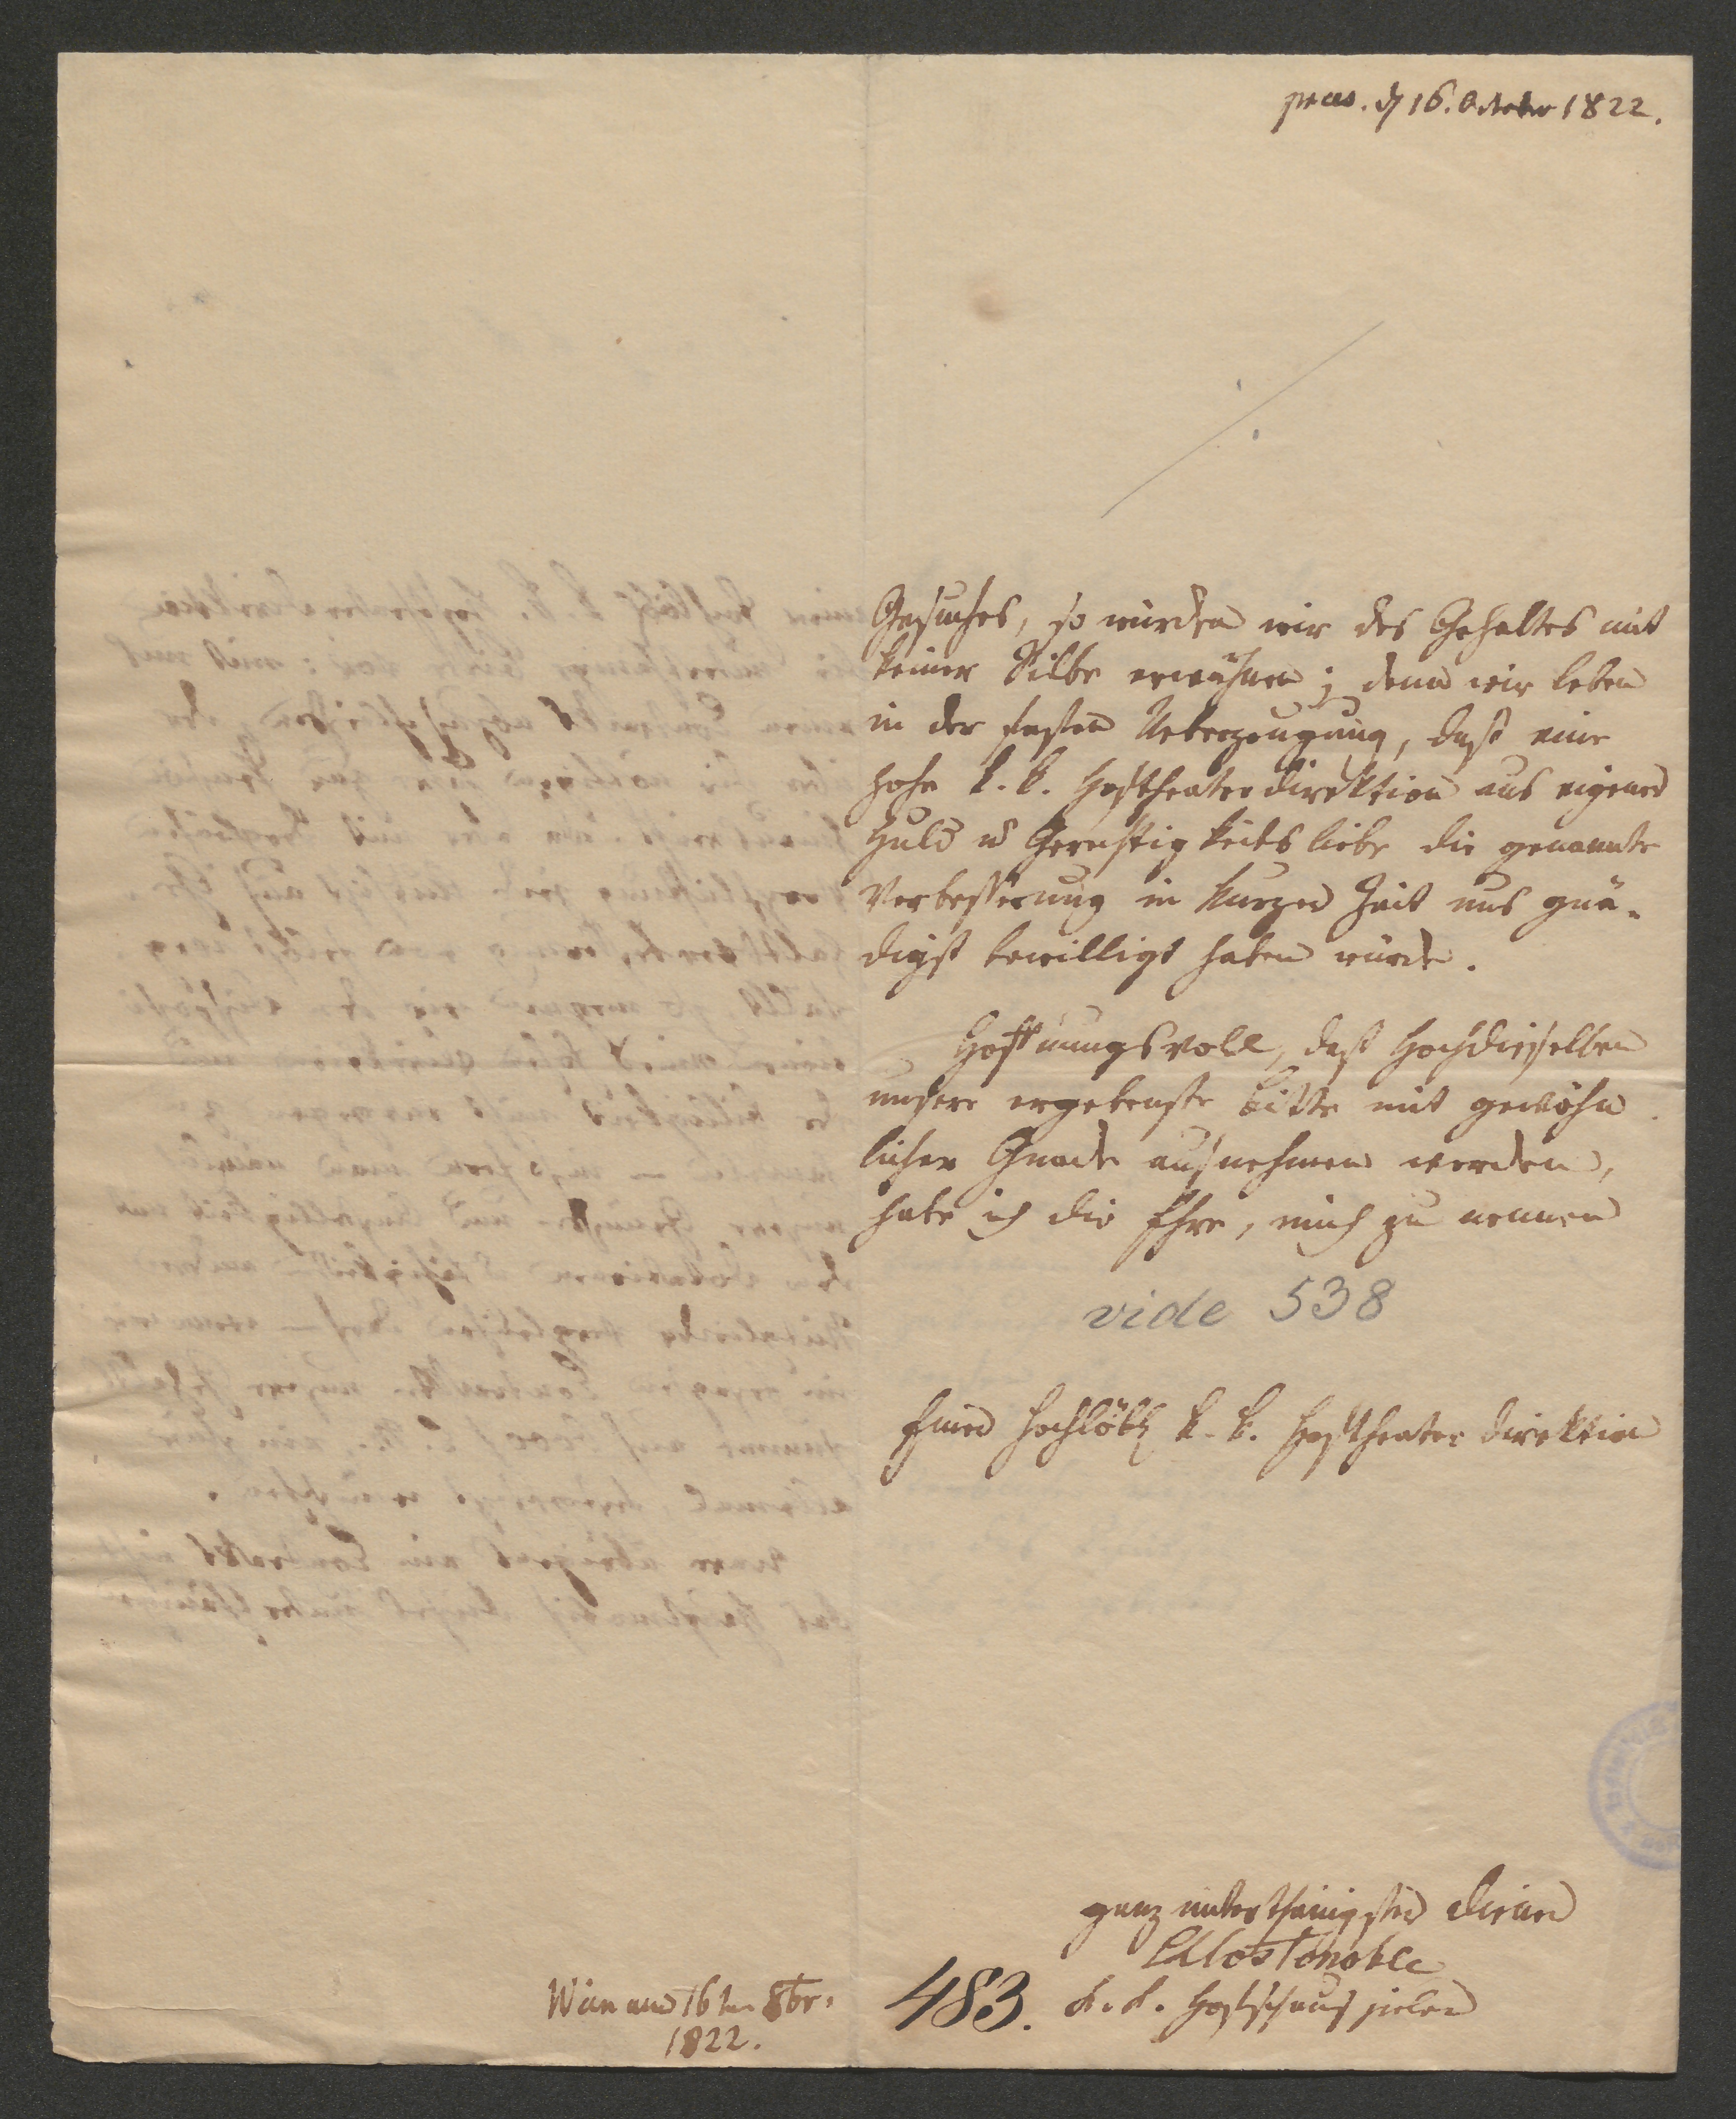 praes. d 16. October 1822.
Gesuches, so würden wir des Gehaltes mit
keiner Silbe erwähnen; denn wir leben
in der festen Ueberzeugung, daß eine
hohe k. k. Hoftheaterdirektion aus eigener
Huld u Gerechtigkeitsliebe die genannte
Verbesserung in kurzer Zeit uns gnä-
digst bewilligt haben würde.
Hoffnungsvoll, daß Hochdieselben
unsere ergebenste Bitte mit gewöhn
licher Gnade aufnehmen werden,
habe ich die Ehre, mich zu nennen
vide 538
Einer hochlöbl k. k. Hoftheater direktion
ganz unterthänigster Diener
Costenoble
k. k. Hofschauspieler
483.
Wien am 16ten 8br.
1822.